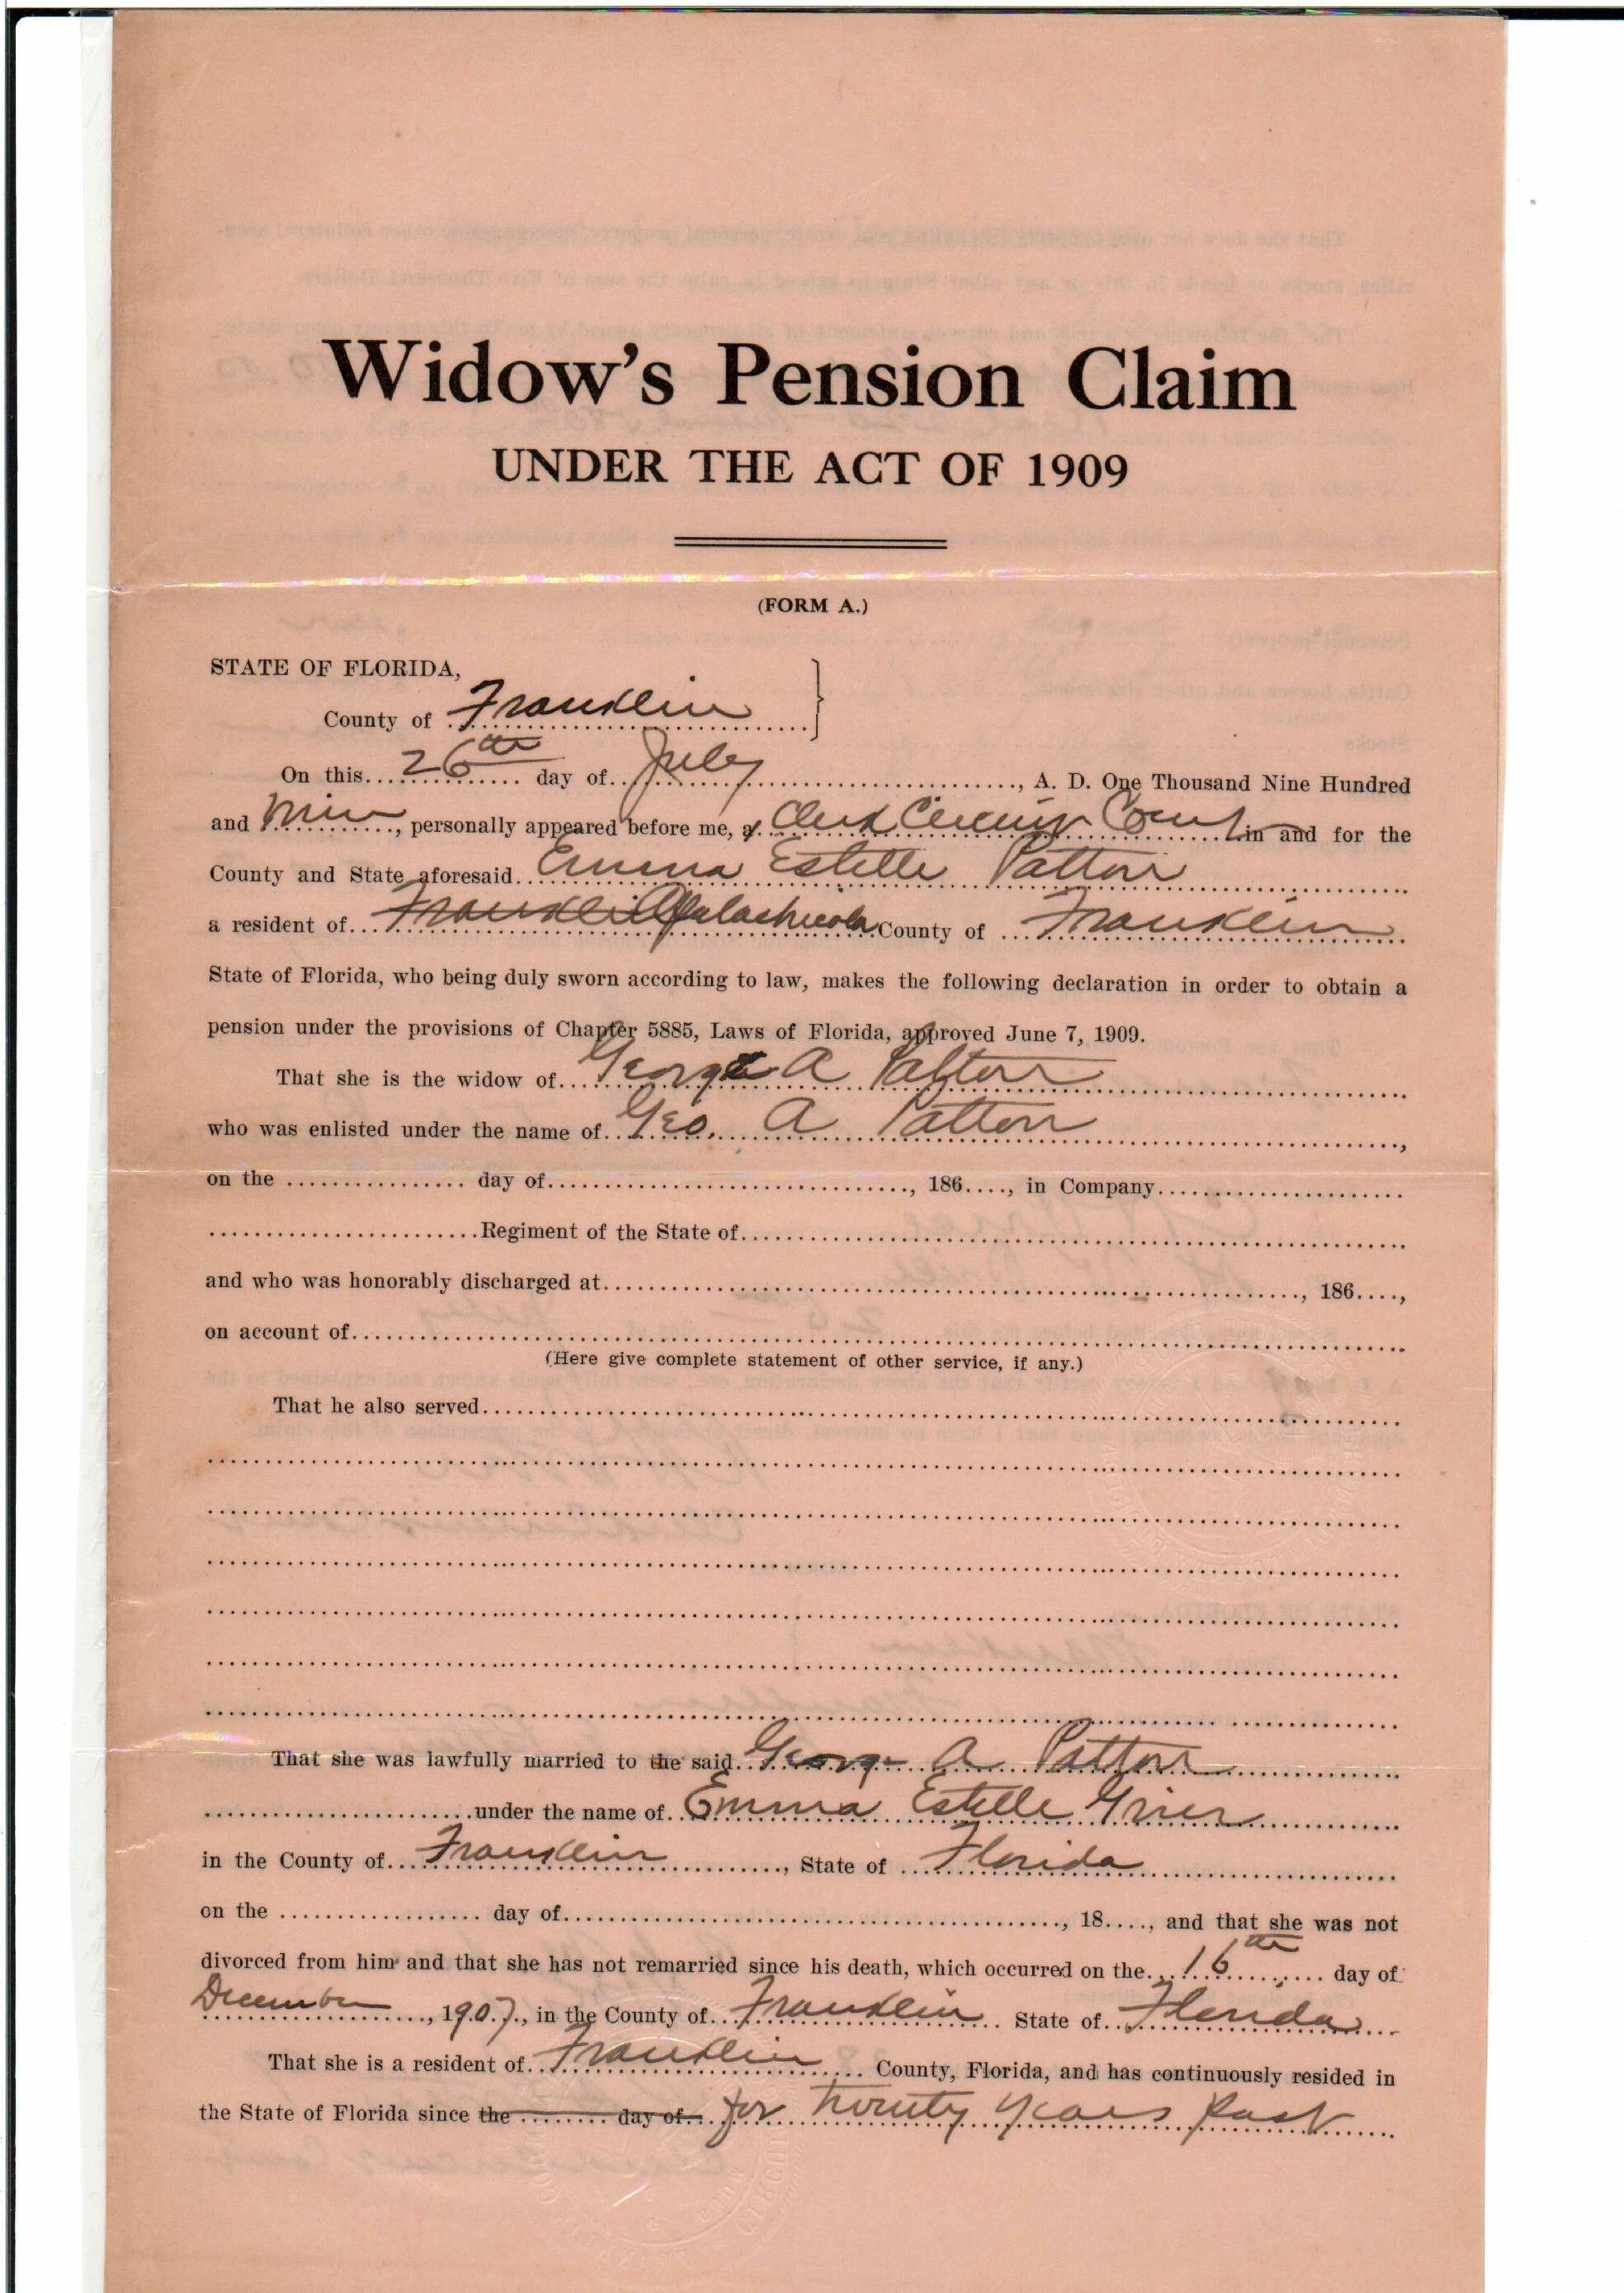 Widow's Pension Claim
UNDER THE ACT OF 1909
(FORM A.)
STATE OF FLORIDA,
County of Franklin
On this 26th day of July, A. D. One Thousand Nine Hundred
and Nine, personally appeared before me, a Clerk Circuit Court in and for the
County and State aforesaid Emma Estelle Patton
a resident of Franklin Apalachicola County of Franklin
State of Florida, who being duly sworn according to law, makes the following declaration in order to obtain a
pension under the provisions of Chapter 5885, Laws of Florida, approved June 7, 1909.
That she is the widow of George A Patton
who was enlisted under the name of Geo. A Patton,
on the ................ day of ................, 186...., in Company................
................Regiment of the State of................
and who was honorably discharged at................, 186....,
on account of................
(Here give complete statement of other service, if any.)
That he also served................
That she was lawfully married to the said George A Patton
................under the name of Emma Estelle Grier
in the County of Franklin, State of Florida
on the ................ day of................, 18...., and that she was not
divorced from him and that she has not remarried since his death, which occurred on the 16th day of
December, 1907, in the County of Franklin State of Florida
That she is a resident of Franklin County, Florida, and has continuously resided in
the State of Florida since the ........ day of for twenty years past